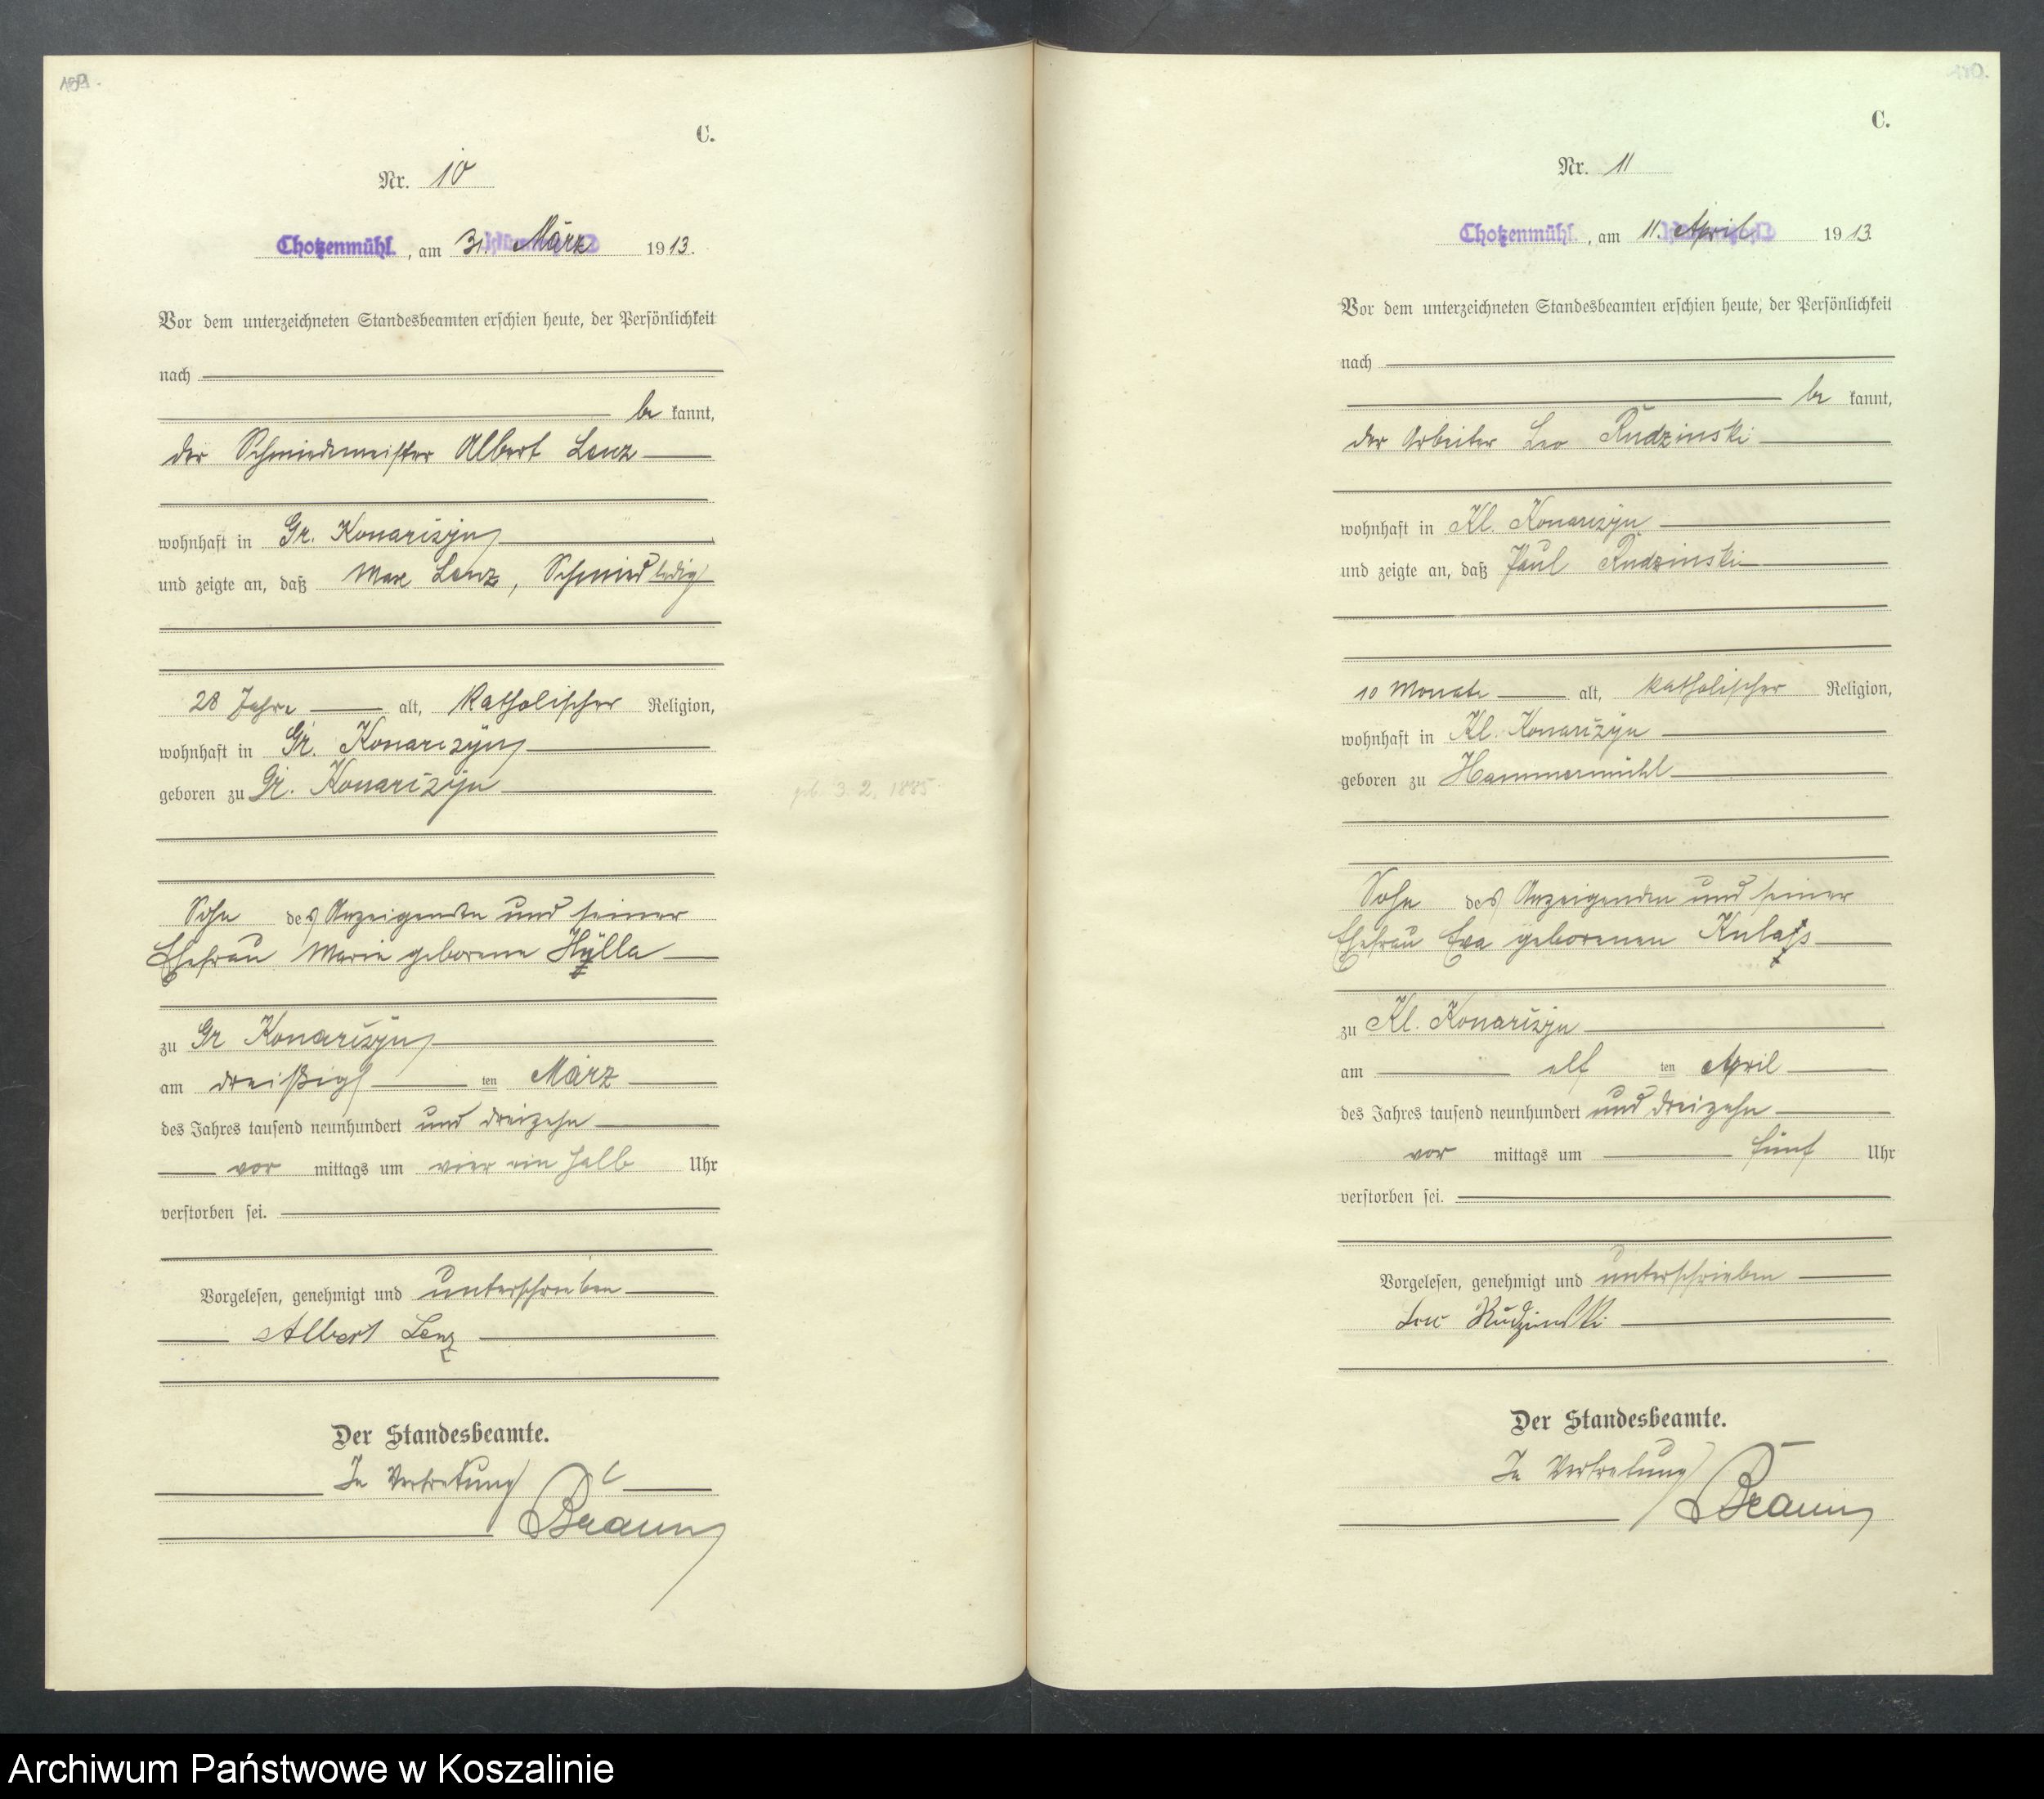 C.
Nr. 10
Chotzenmühl, am 31. März 1913.
Vor dem unterzeichneten Standesbeamten erschien heute, der Persönlichkeit
nach
be kannt,
der Schmiedemeister Albert Lenz
wohnhaft in Gr. Konarczyn
und zeigte an, daß Max Lenz, Schmied ledig
28 Jahre alt, katholischer Religion,
wohnhaft in Gr. Konarczyn
geboren zu Gr. Konarczyn
geb. 3. 2. 1885
Sohn des Anzeigenden und seiner
Ehefrau Marie geborene Hylla
zu Gr Konarczyn
am dreißigs ten März
des Jahres tausend neunhundert und dreizehn
vor mittags um vier ein halb Uhr
verstorben sei.
Vorgelesen, genehmigt und unterschrieben
Albert Lenz
Der Standesbeamte.
In Vertretung
Braun
C.
Nr. 11
Chotzenmühl, am 11. April 1913
Vor dem unterzeichneten Standesbeamten erschien heute, der Persönlichkeit
nach
be kannt,
der Arbeiter Leo Rudzinski
wohnhaft in Kl. Konarczyn
und zeigte an, daß Paul Rudzinski
10 Monate alt, katholischer Religion,
wohnhaft in Kl. Konarczyn
geboren zu Hammermühl
Sohn des Anzeigenden und seiner
Ehefrau Eva geborenen
zu Kl. Konarczyn
am elf ten April
des Jahres tausend neunhundert und dreizehn
vor mittags um fünf Uhr
verstorben sei.
Vorgelesen, genehmigt und unterschrieben
Leo Rudzinski
Der Standesbeamte.
In Vertretung
Braun
Archiwum Państwowe w Koszalinie